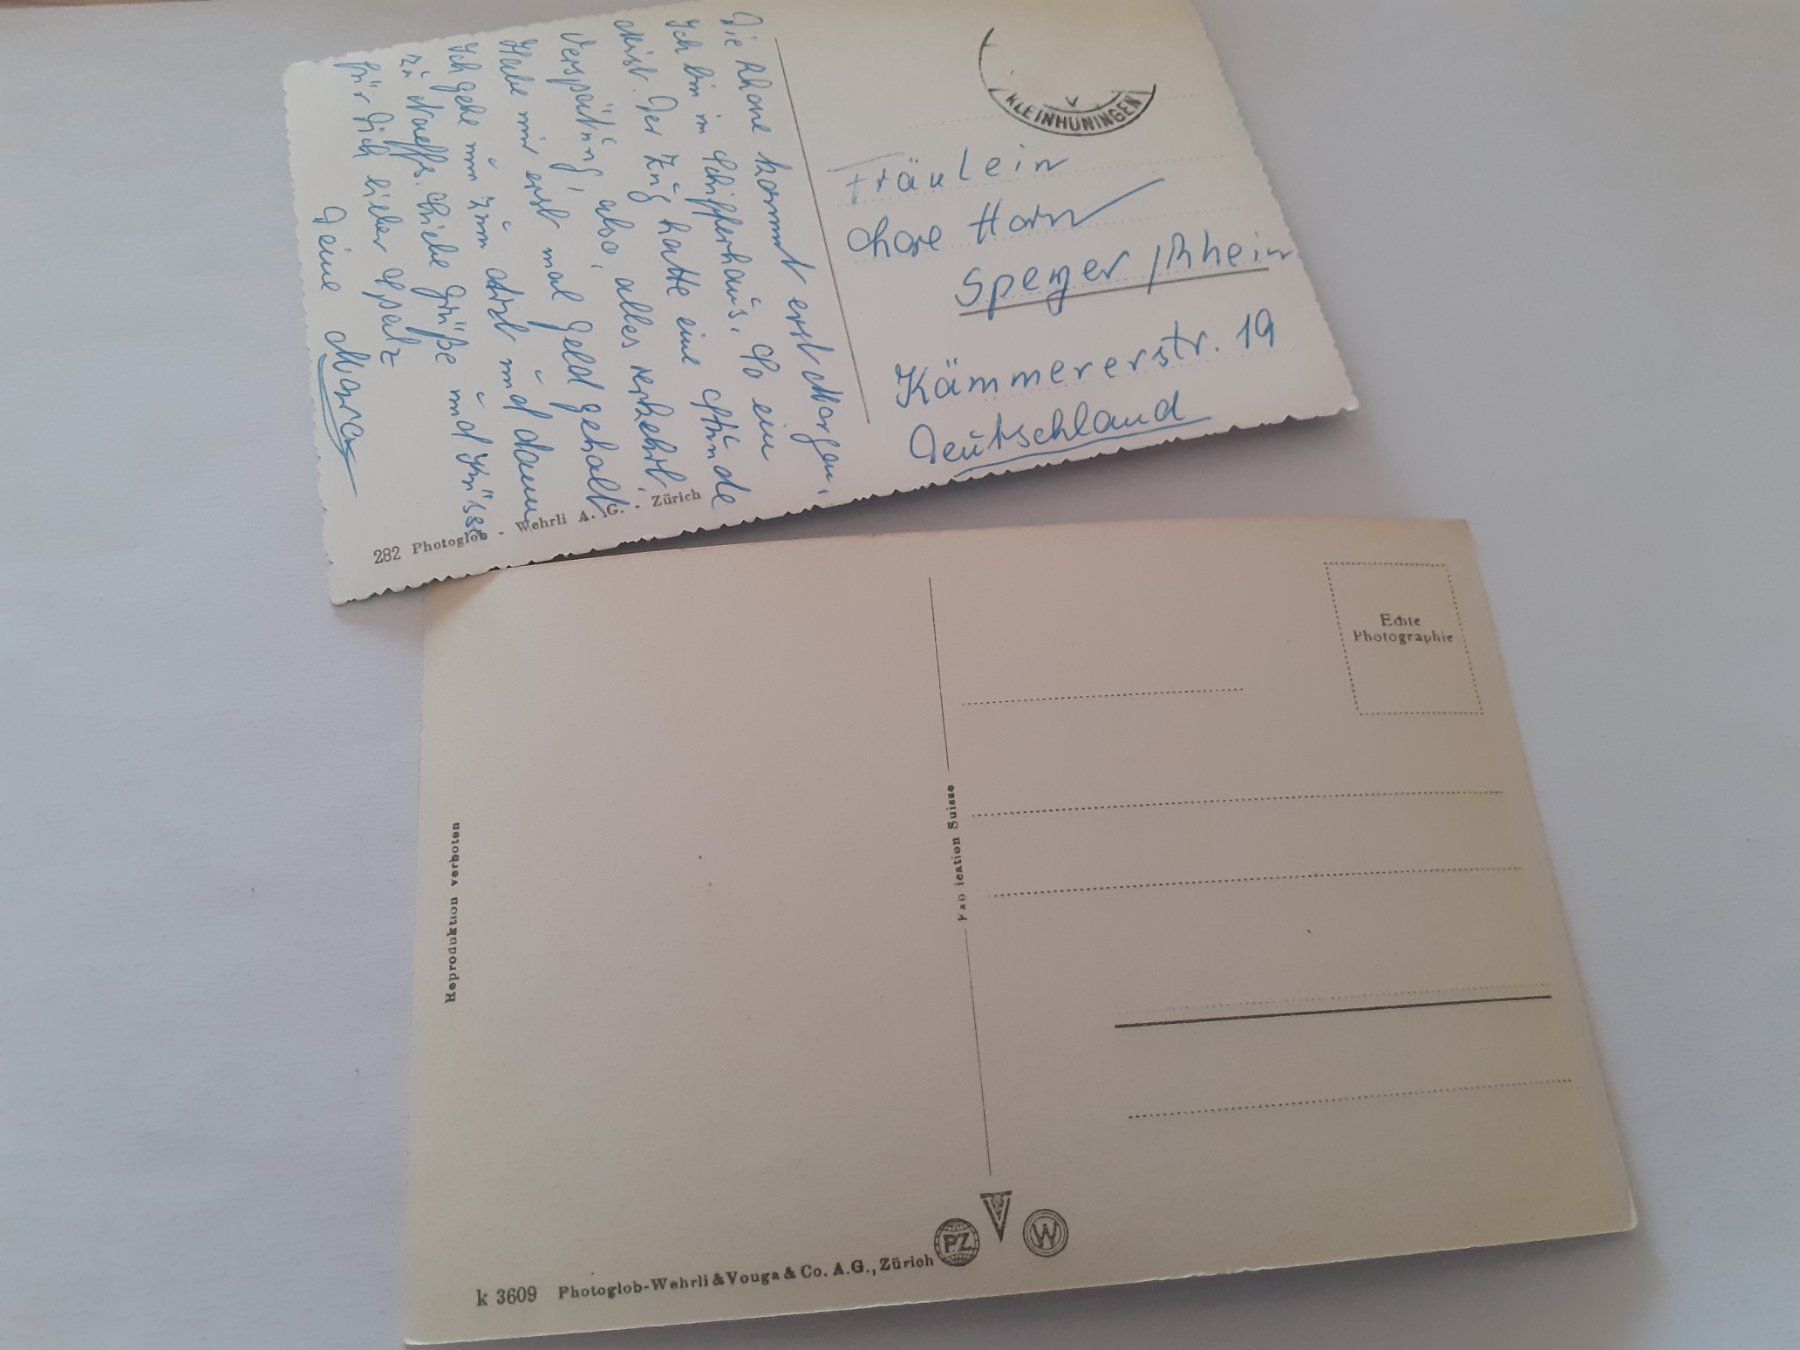 Die Rhone kommt erst Morgen.
Ich bin im Schifferhaus. So ein
Mist. Der Zug hatte eine Stunde
Verspätung, also, alles verkehrt.
Habe mir erst mal Geld geholt
Ich gehe nun zum Arzt und dann
zu Naeffs. Liebe Grüße und Küsse
für Dich lieber Spatz
Deine
KLEINHÜNINGEN
Fräulein
Horn
Speyer/Rhein
Kämmererstr. 19
Deutschland
282 Photoglob - Wehrli A. G. - Zürich
Echte
Photographie
Reproduktion verboten
Fab ication Suisse
PZ
W
k 3609 Photoglob-Wehrli & Vouga & Co. A.G., Zürich